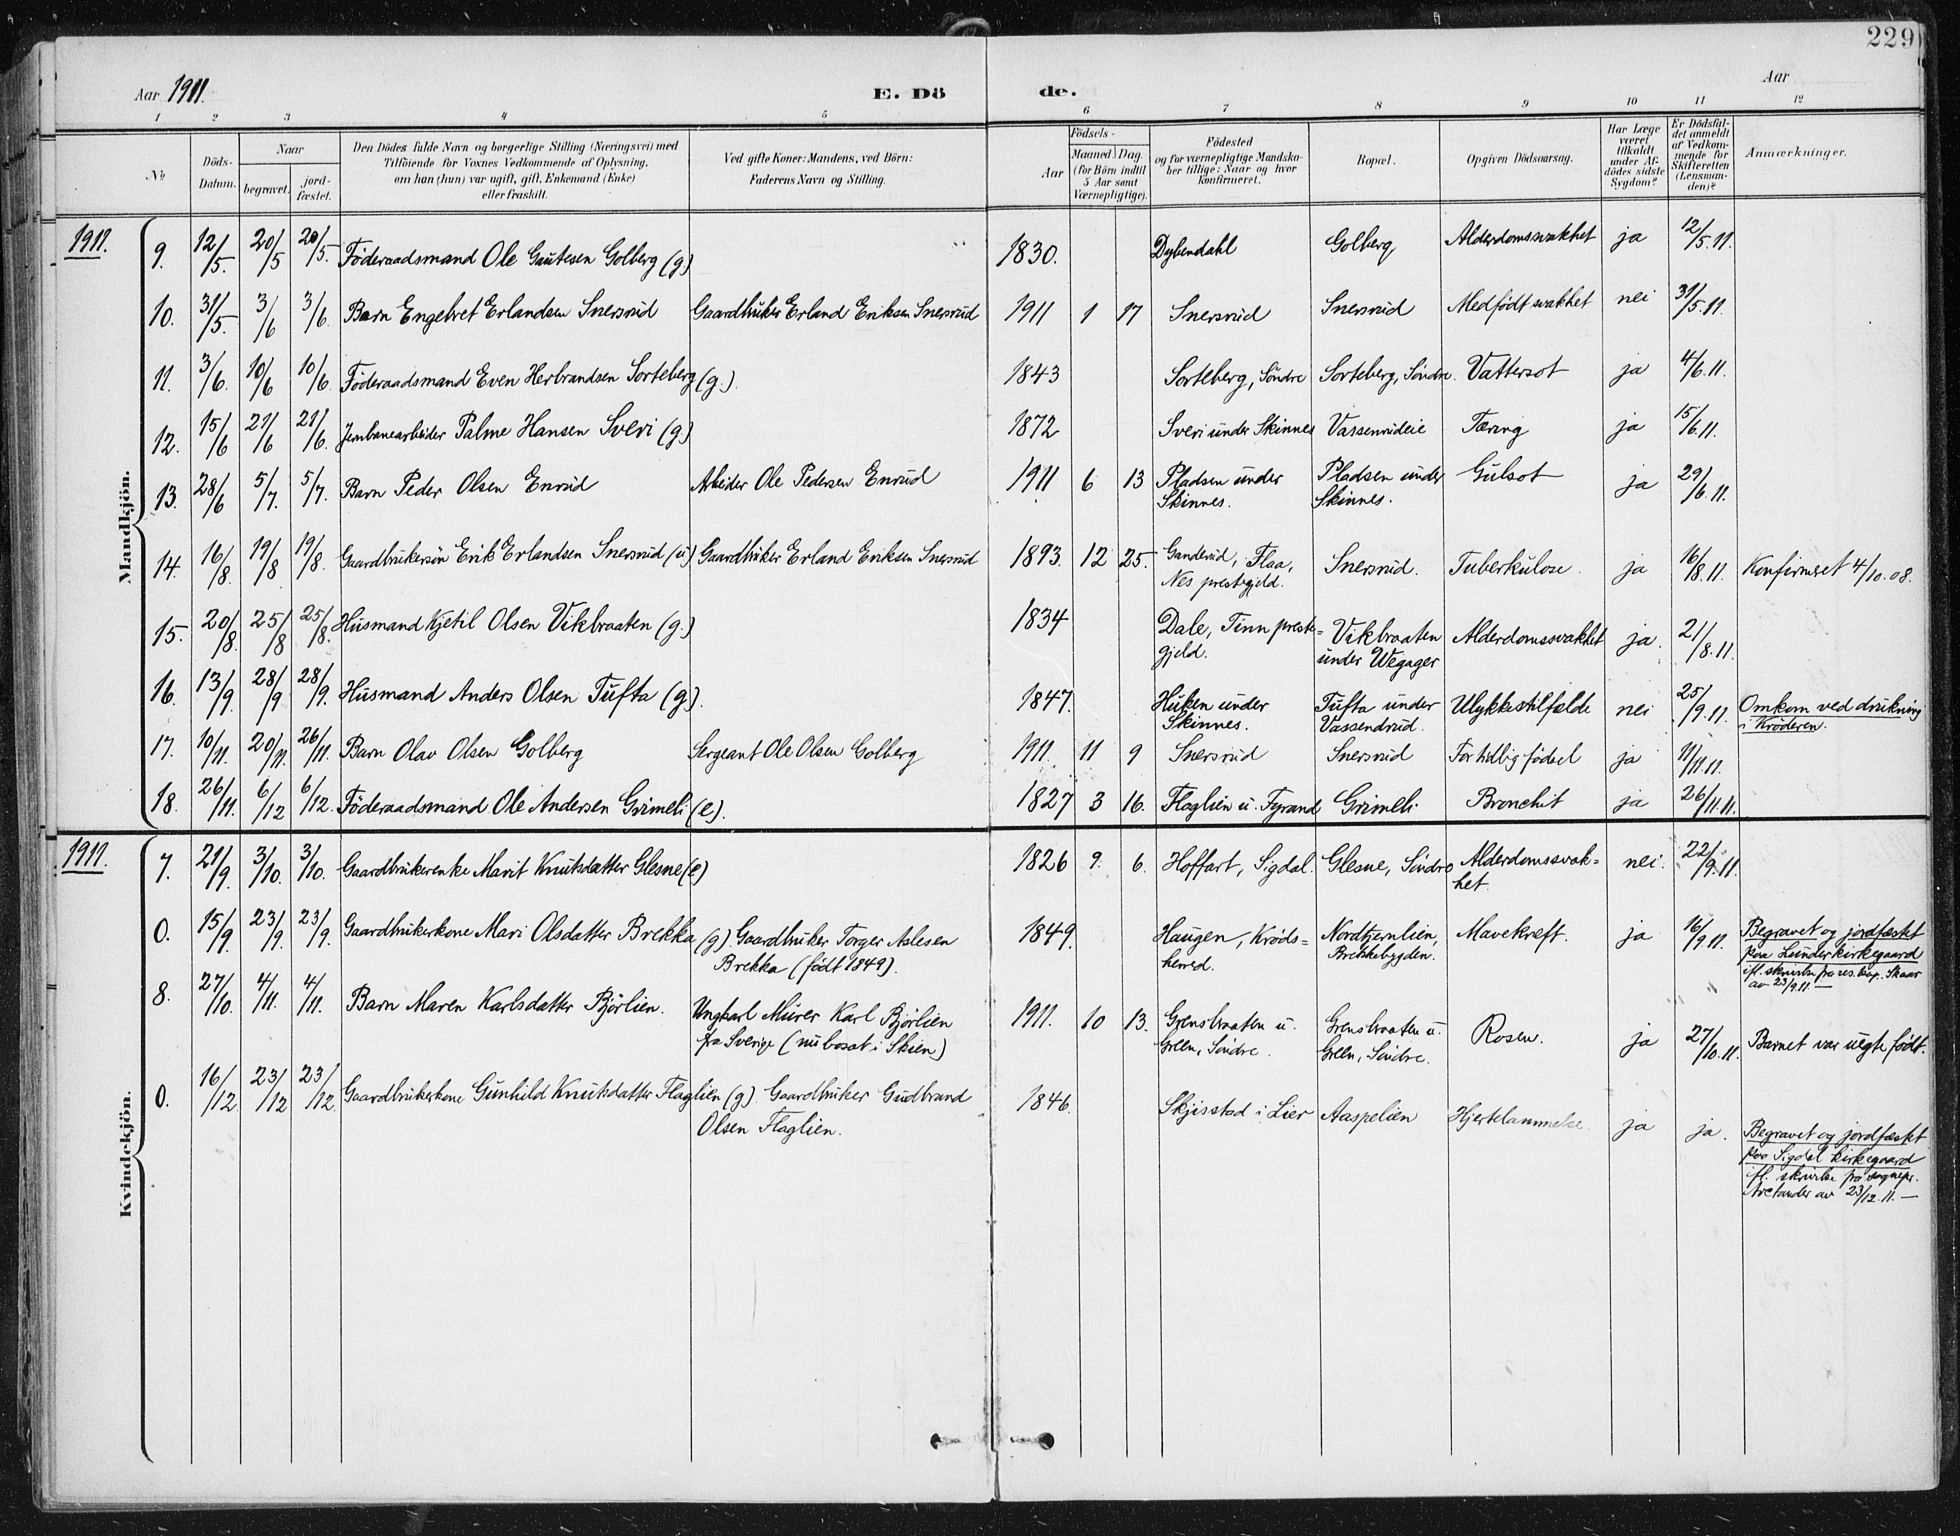 229
Aar 1911.
E. Dö
de.
Aar
1 2 3 4 5 6 7 8 9 10 11 12
№
Döds-Datum.
Naar
begravet.
jord-fæstet.
Den Dödes fulde Navn og borgerlige Stilling (Næringsvei) med
Tilföiende for Voxnes Vedkommende af Oplysning,
om han (hun) var ugift, gift, Enkemand (Enke)
eller fraskilt.
Ved gifte Koner: Mandens, ved Börn:
Faderens Navn og Stilling.
Födsels-
Aar
Maaned Dag.
(for Börn indtil
5 Aar samt
Værnepligtige).
Födested
og for værnepligtige Mandska-
ber tillige: Naar og hvor
konfirmeret.
Bopæl.
Opgiven Dödsaarsag.
Har Læge
været
tilkaldt
under Af-
dödes sidste
Sygdom?
Er Dödsfal-
det anmeldt
af Vedkom-
mende for
Skifteretten
(Lensman-
den)?
Anmærkninger.
Mandkjön.
1911. 9. 12/5. 20/5 20/5. Föderaadsmand Ole Gautesen Golberg (g) 1830. Dybendahl Golberg Alderdomssvakhet ja 12/5.11.
10. 31/5. 3/6 3/6. Barn Engebret Erlandsen Snersrud Gaardbruker Erland Eriksen Snersrud 1911 1 17 Snersrud Snersrud Medfødt svakhet nei 31/5.11.
11. 3/6. 10/6 10/6. Föderaadsmand Even Herbrandsen Sorteberg (g.). 1843 Sorteberg, Søndre Sorteberg, Søndre. Vattersot ja 4/6.11.
12. 15/6 21/6 21/6. Jernbanearbeider Palme Hansen Sveri (g) 1872 Sveri under Skinnes Vassenrudeie Tæring ja 15/6.11.
13. 28/6 5/7. 5/7. Barn Peder Olsen Enrud Arbeider Ole Pedersen Enrud 1911 6 13 Pladsen under
Skinnes. Pladsen under
Skinnes. Gulsot ja 29/6.11.
14. 16/8. 19/8 19/8. Gaardbrukersön Erik Erlandsen Snersrud (u) Gaardbruker Erland Eriksen Snersrud 1893. 12 25. Ganderud, Flaa,
Nes prestegjeld. Snersrud. Tuberkulose. ja 16/8.11. Konfirmeret 4/10.08.
15. 20/8. 25/8 25/8. Husmand Kjetil Olsen Vikbraaten (g.) 1834 Dale, Tinn preste-
gjeld. Vikbraaten
under Wegager Alderdomssvakhet ja. 21/8.11.
16. 13/9. 28/9 28/9. Husmand Anders Olsen Tufta (g). 1847. Huken under
Skinnes. Tufta under
Vassendrud. Ulykkestilfælde nei 25/9.11. Omkom ved drukning
i Krøderen.
17. 10/11. 20/11. 26/11. Barn Olav Olsen Golberg Sergeant Ole Olsen Golberg 1911. 11 9 Snersrud Snersrud For tidlig fødsel ja 11/11.11.
18. 26/11. 6/12 6/12. Föderaadsmand Ole Andersen Grimeli (e). 1827 3 16. Flaglien u. Fyrand Grimeli Bronchit ja 26/11.11.
Kvindekjön.
1911. 7. 21/9. 3/10. 3/10. Gaardbrukerenke Marit Knutsdatter Glesne (e) 1826 9. 6. Hoffart, Sigdal. Glesne, Søndre Alderdomssvak-
het. nei. 22/9.11.
0. 15/9. 23/9. 23/9. Gaardbrukerkone Mari Olsdatter Brekka (g). Gaardbruker Torger Aslesen
Brekka (født 1849). 1849. Haugen, Krøds-
herred. Nordtjernlien,
Brekkebygden. Mavekræft. ja 16/9.11. Begravet og jordfæstet
paa Lunder kirkegaard
ifl. skrivelse fra res. kap. Skaar
av 23/9.11. —
8. 27/10. 4/11. 4/11. Barn Maren Karlsdatter Bjørlien. Ungkarl Murer Karl Bjørlien
fra Sverige (nu bosat i Skien) 1911. 10 13. Grensbraaten u.
Green, Søndre. Grensbraaten u.
Green, Søndre. Rosen. ja 27/10.11. Barnet var uegte født.
0. 16/12. 23/12 23/12. Gaardbrukerkone Gunhild Knutsdatter Flaglien (g) Gaardbruker Gudbrand
Olsen Flaglien. 1846. Skjisstad i Lier Aaspelien Hjertelammelse. ja ja. Begravet og jordfæstet
paa Sigdal kirkegaard
ifl. skrivelse fra sognepr.
Aretander av 23/12.11. —